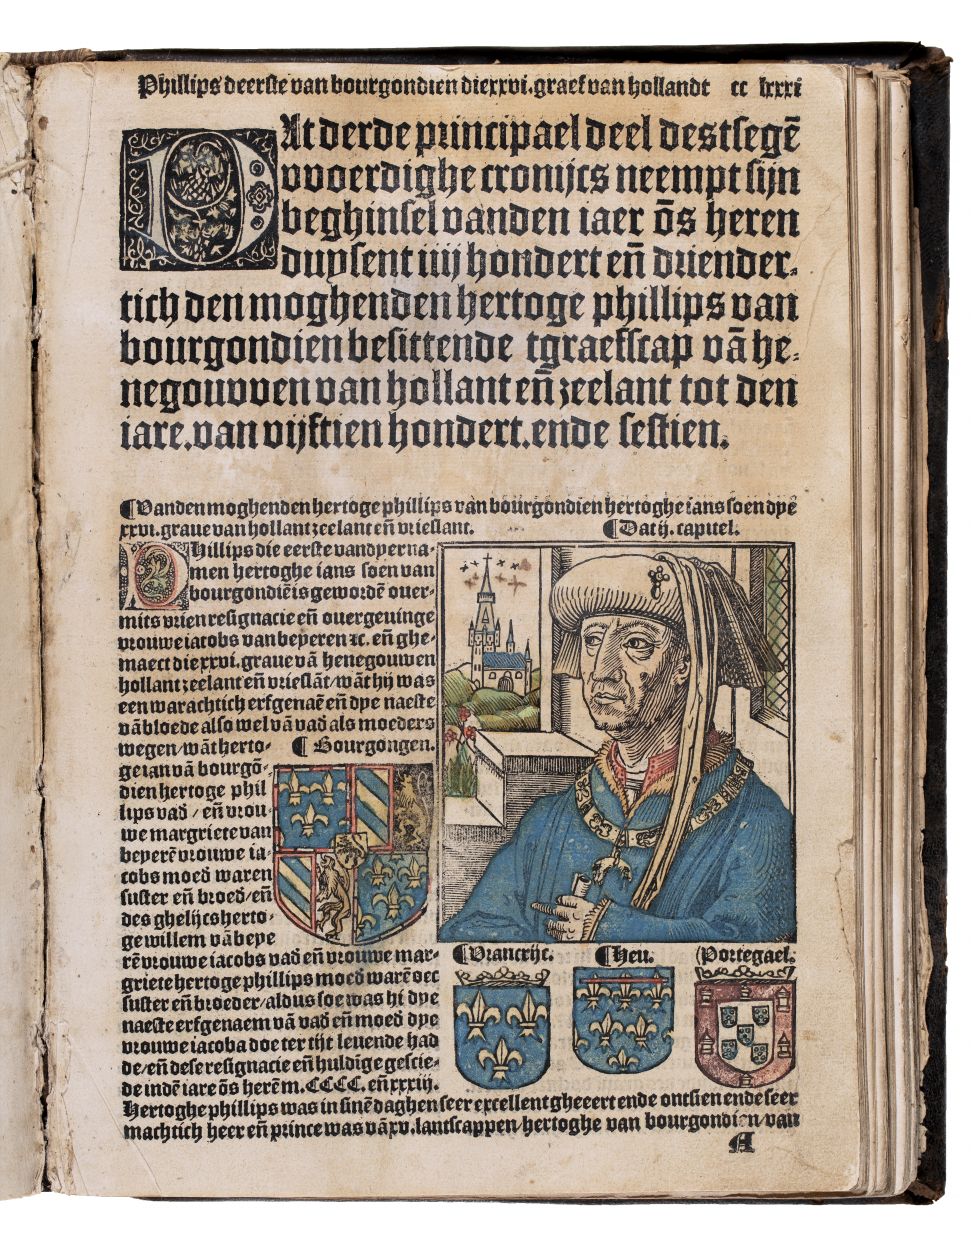 Phillips deerste van bourgondien die xxvi. graef van hollandt cc lxxxi
DAt derde principael deel deser tseghē
vvoerdighe cronijcs neempt sijn
beghinsel vanden iaer ōs heren
duysent iiij hondert eñ driender⸗
tich den moghenden hertoge phillips van
bourgondien besittende tgraefscap vā he⸗
negouvven van hollant eñ zeelant tot den
iare. van vijftien hondert. ende sestien.
¶ Vanden moghenden hertoge phillips van bourgondien hertoghe ians soen dye
xxvi. graue van hollant zeelant eñ vrieslant. ¶ Dat ij. capitel.
PHillips die eerste van dyer na⸗
men hertoghe ians soen van
bourgondiē is gewordē ouer⸗
mits vrien resignacie eñ ouergeuinge
vrouwe iacobs van beyeren ⁊c. eñ ghe⸗
maect die xxvi. graue vā henegouwen
hollant zeelant eñ vrieslāt/ wāt hij was
een warachtich erfgenaē eñ dye naeste
vā bloede also wel vā vad als moeders
wegen/ wāt herto⸗ ¶ Bourgongen.
ge ian vā bourgō⸗
dien hertoge phil
lips vad/ eñ vrou⸗
we margriete van
beyerē vrouwe ia⸗
cobs moed waren
suster eñ broed/ eñ
des ghelijcs herto⸗
ge willem vā beye
rē vrouwe iacobs vad eñ vrouwe mar⸗
griete hertoge phillips moed warē oec
suster eñ broeder/ aldus soe was hi dye
naeste erfgenaem vā vad eñ moed dye
vrouwe iacoba doe ter tijt leuende had
de/ eñ dese resignacie eñ huldīge gescie⸗
de indē iare ōs herē m. CCCC. eñ xxxiij.
¶ Vrancrijt. ¶ Heu. ¶ Portegael.
Hertoghe phillips was in sinē daghen seer excellent gheeert ende ontsien ende seer
machtich heer eñ prince was vā xv. lantscappen/ hertoghe van bourgondien/ van
A